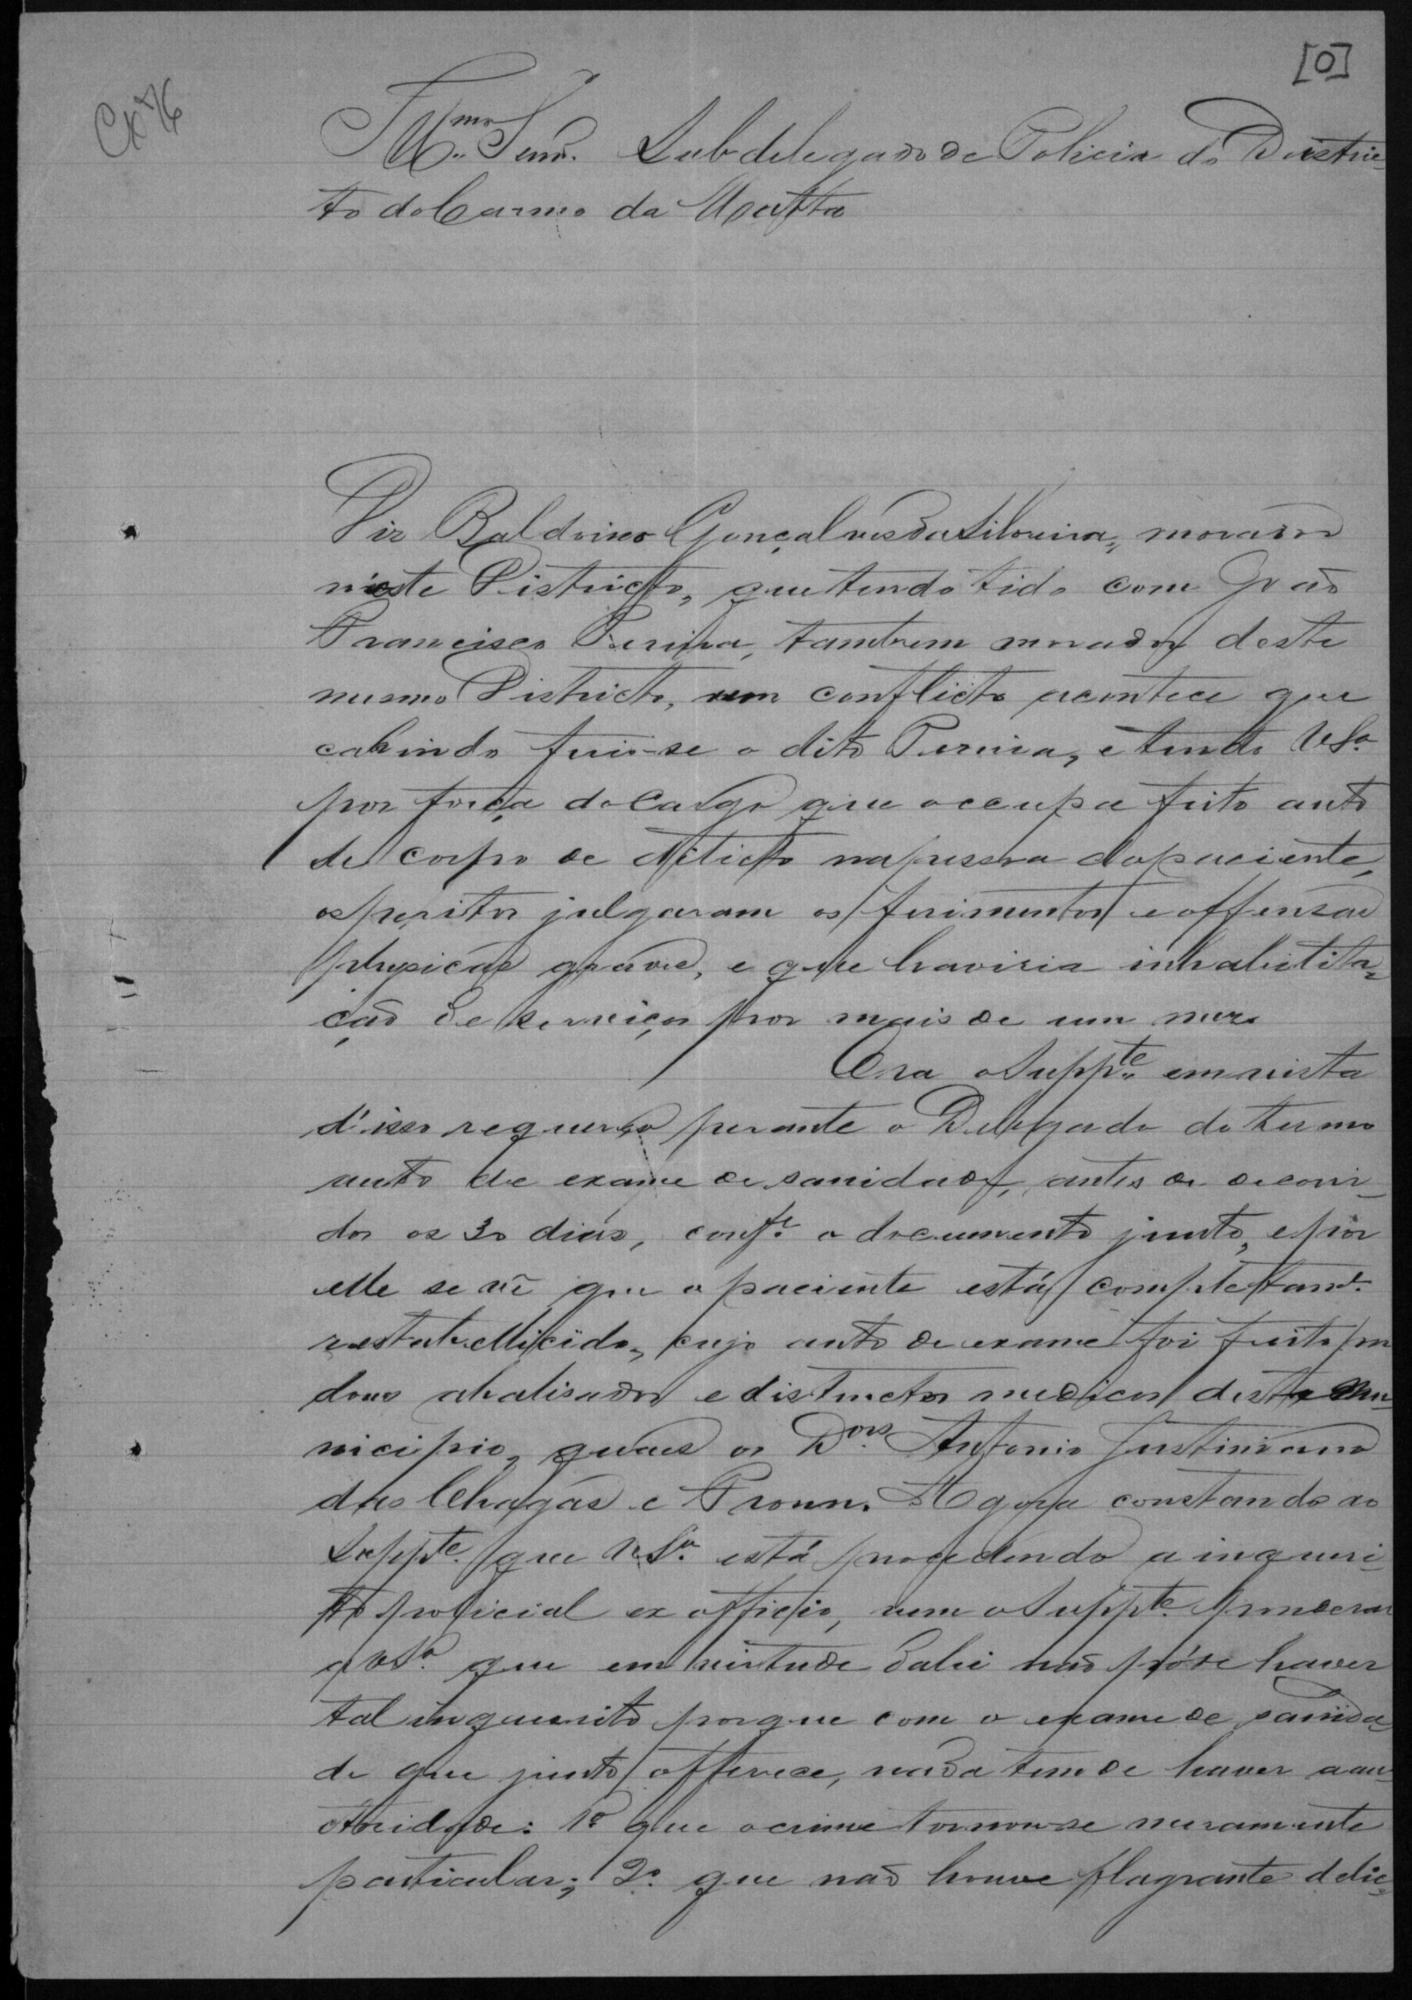 [0]
Cx 76
Illmo Senr. Subdelegado de Policia do Distric-
to do Carmo da Matta
Diz Baldoino Gonçalves da Silveira, morador
n'este Districto, que tendo tido com João
Francisco Pereira, tambem morador deste
mesmo Districto, um conflicto acontece que
cahindo ferio-se o dito Pereira, e tendo VSa
por força do Cargo que occupa feito auto
de corpo de delicto na pessoa do paciente,
os peritos julgaram os ferimentos e offensas
physicas graves, e que haviria inhabilita-
ção de serviços por mais de um mez.
Ora o Suppte. em vista
d'isso requereo perante o Delegado do termo
auto de exame de sanidade, antes de decorri-
dos os 30 dias, confe. o documento junto, e por
elle se vê que o paciente está completamte.
restabellicido, cujo auto de exame foi feito por
dous abalisados e distinctos medicos deste Mu-
nicipio, quaes os Dors. Antonio Justiniano
das Chagas e . Agora constando ao
Suppte. que VSa. está procedendo a inqueri-
to policial ex officio, vem o Suppte. ponderar
a VSa. que em virtude da lei não póde haver
tal inquerito porque com o exame de sanida-
de que junto offerece, nada tem de haver a au-
toridade: 1º que o crime tornou-se meramente
particular; 2º. que não houve flagrante delic-